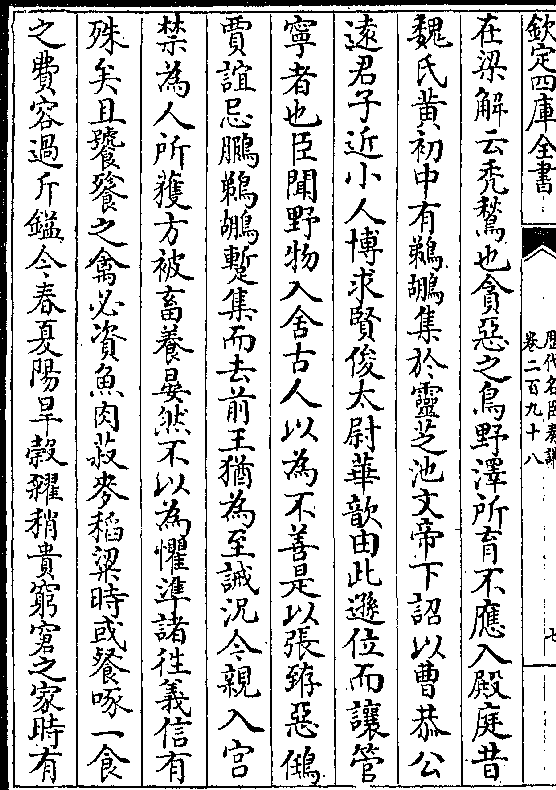 欽定四庫全書
歷代名臣奏議
卷二百九十八
七
在梁解云禿鶖也貪惡之鳥野澤所育不應入殿庭昔
魏氏黃初中有鵜鶘集於靈芝池文帝下詔以曹恭公
遠君子近小人博求賢俊太尉華歆由此遜位而讓管
寧者也臣聞野物入舍古人以為不善是以張臶惡鵀
賈誼忌鵩鵜鶘蹔集而去前王猶為至誡況今親入宮
禁為人所獲方被畜養晏然不以為懼準諸徃義信有
殊矣且饕餮之禽必資魚肉菽麥稻粱時或餐啄一食
之費容過斤鎰今春夏陽旱糓糴稍貴窮窘之家時有